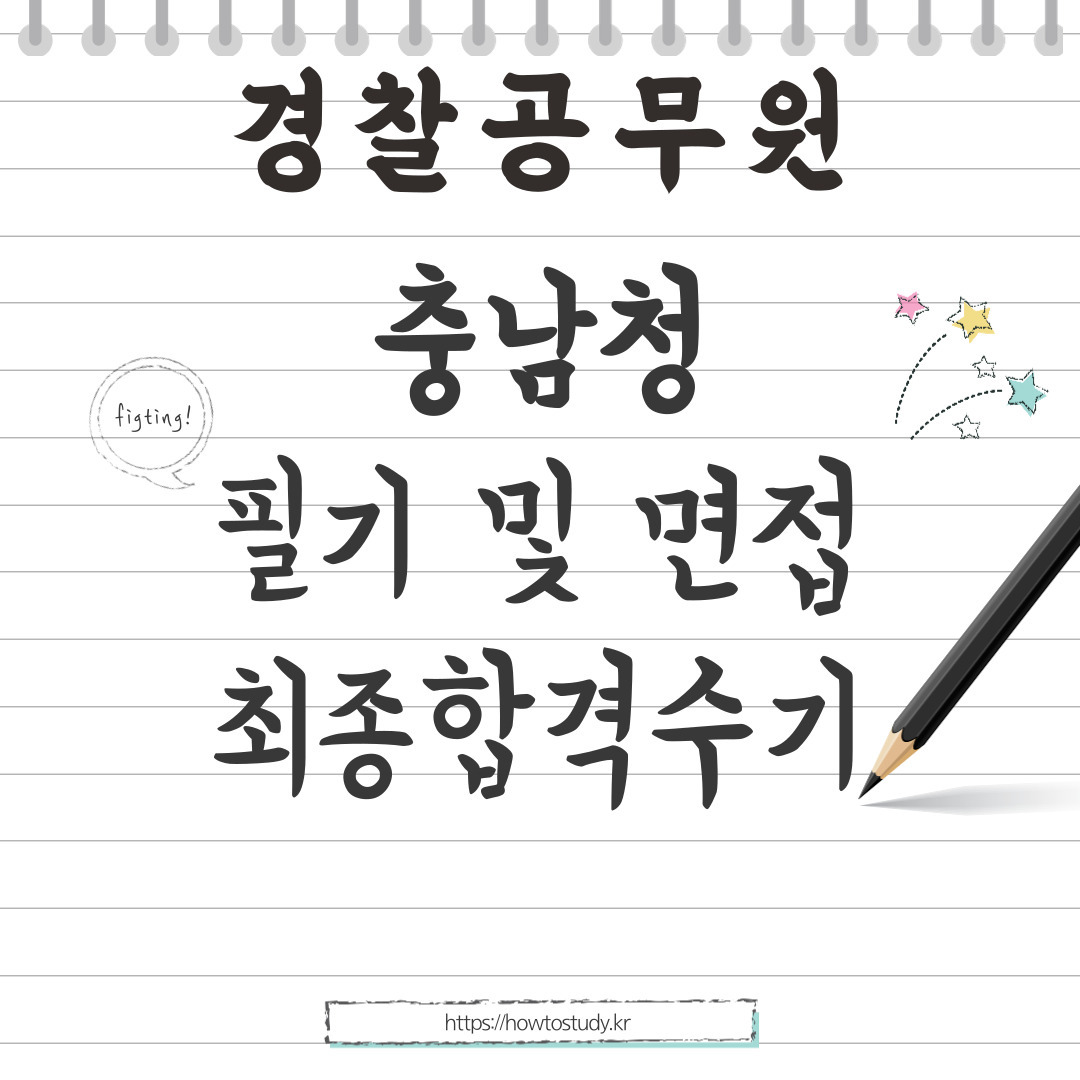 경찰공무원
충남청
figting!
필기 및 면접
최종합격수기
https://howtostudy.kr